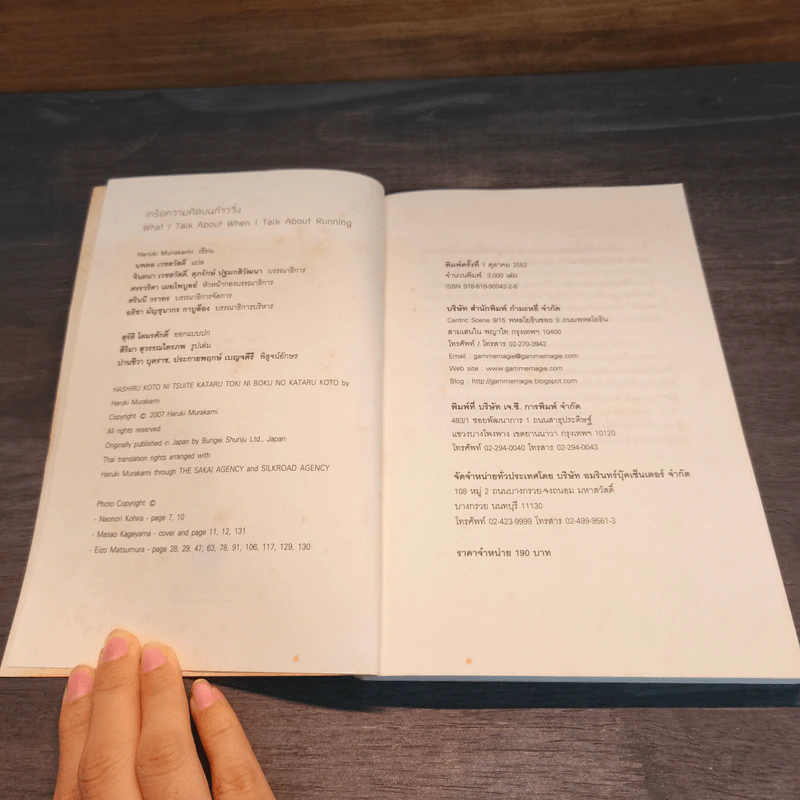 เกร็ดความคิดบนก้าววิ่ง
What I Talk About When I Talk About Running
Haruki Murakami เขียน
นพดล เวชสวัสดิ์ แปล
จินตนา เวชสวัสดิ์, ศุภรักษ์ ปฐมกสิวัฒนา บรรณาธิการ
สรรวริศา เมฆไพบูลย์ หัวหน้ากองบรรณาธิการ
ศรินนี วราทร บรรณาธิการจัดการ
อธิชา มัญชุนากร กาบูล็อง บรรณาธิการบริหาร
สุรัติ โตมรศักดิ์ ออกแบบปก
สิริมา สุวรรณไตรภพ รูปเล่ม
ปานชีวา บุตราช, ประกายพฤกษ์ เบญจคีรี พิสูจน์อักษร
HASHIRU KOTO NI TSUITE KATARU TOKI NI BOKU NO KATARU KOTO by
Haruki Murakami
Copyright © 2007 Haruki Murakami
All rights reserved
Originally published in Japan by Bungei Shunju Ltd., Japan
Thai translation rights arranged with
Haruki Murakami through THE SAKAI AGENCY and SILKROAD AGENCY
Photo Copyright ©
- Naonori Kohira - page 7, 10
- Masao Kageyama - cover and page 11, 12, 131
- Eizo Matsumura - page 28, 29, 47, 63, 78, 91, 106, 117, 129, 130
พิมพ์ครั้งที่ 1 ตุลาคม 2552
จำนวนพิมพ์ 3,000 เล่ม
ISBN 978-616-90042-2-6
บริษัท สำนักพิมพ์ กำมะหยี่ จำกัด
Centric Scene 9/15 พหลโยธินซอย 9 ถนนพหลโยธิน
สามเสนใน พญาไท กรุงเทพฯ 10400
โทรศัพท์ / โทรสาร 02-270-3942
Email : gammemagie@gammemagie.com
Web site : www.gammemagie.com
Blog : http://gammemagie.blogspot.com
พิมพ์ที่ บริษัท เจ.ซี. การพิมพ์ จำกัด
483/1 ซอยพัฒนาการ 1 ถนนสาธุประดิษฐ์
แขวงบางโพงพาง เขตยานนาวา กรุงเทพฯ 10120
โทรศัพท์ 02-294-0040 โทรสาร 02-294-0043
จัดจำหน่ายทั่วประเทศโดย บริษัท อมรินทร์บุ๊คเซ็นเตอร์ จำกัด
108 หมู่ 2 ถนนบางกรวย-จงถนอม มหาสวัสดิ์
บางกรวย นนทบุรี 11130
โทรศัพท์ 02-423-9999 โทรสาร 02-499-9561-3
ราคาจำหน่าย 190 บาท